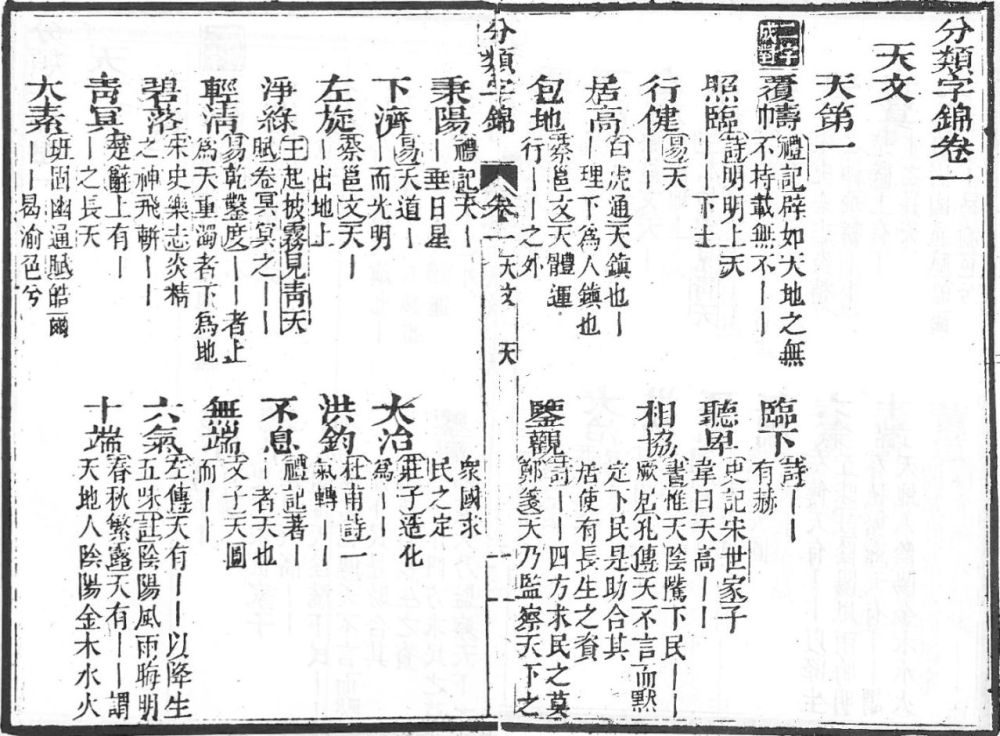 分類字錦卷一
天文
天第一
二字成對
覆幬
禮記辟如天地之無
不持載無不丨丨
臨下
詩丨丨
有赫
照臨
詩明明上天
丨丨下土
聽卑
史記宋世家子
韋曰天高丨丨
行健
易天
丨丨
相協
書惟天陰騭下民丨丨
厥居孔傳天不言而默
定下民是助合其
居使有長生之資
居高
白虎通天鎮也丨
丨理下爲人鎮也
包地
蔡邕文天體運
行丨丨之外
鑒觀
詩丨丨四方求民之莫
鄭箋天乃監察天下之
分類字錦
卷一
天文
天
秉陽
禮記天丨
丨垂日星
衆國求
民之定
下濟
易天道丨
丨而光明
大冶
莊子造化
爲丨丨
左旋
蔡邕文天丨
丨出地上
洪鈞
杜甫詩一
氣轉丨丨
淨綠
王起披霧見青天
賦卷冥冥之丨丨
不息
禮記著丨
丨者天也
輕清
易乾鑿度丨丨者上
爲天重濁者下爲地
無端
文子天圓
而丨丨
碧落
宋史樂志炎精
之神飛軿丨丨
六氣
左傳天有丨丨以降生
五味註陰陽風雨晦明
青冥
楚辭上有丨
丨之長天
十端
春秋繁露天有丨丨謂
天地人陰陽金木水火
大素
班固幽通賦皓爾
丨丨曷渝色兮